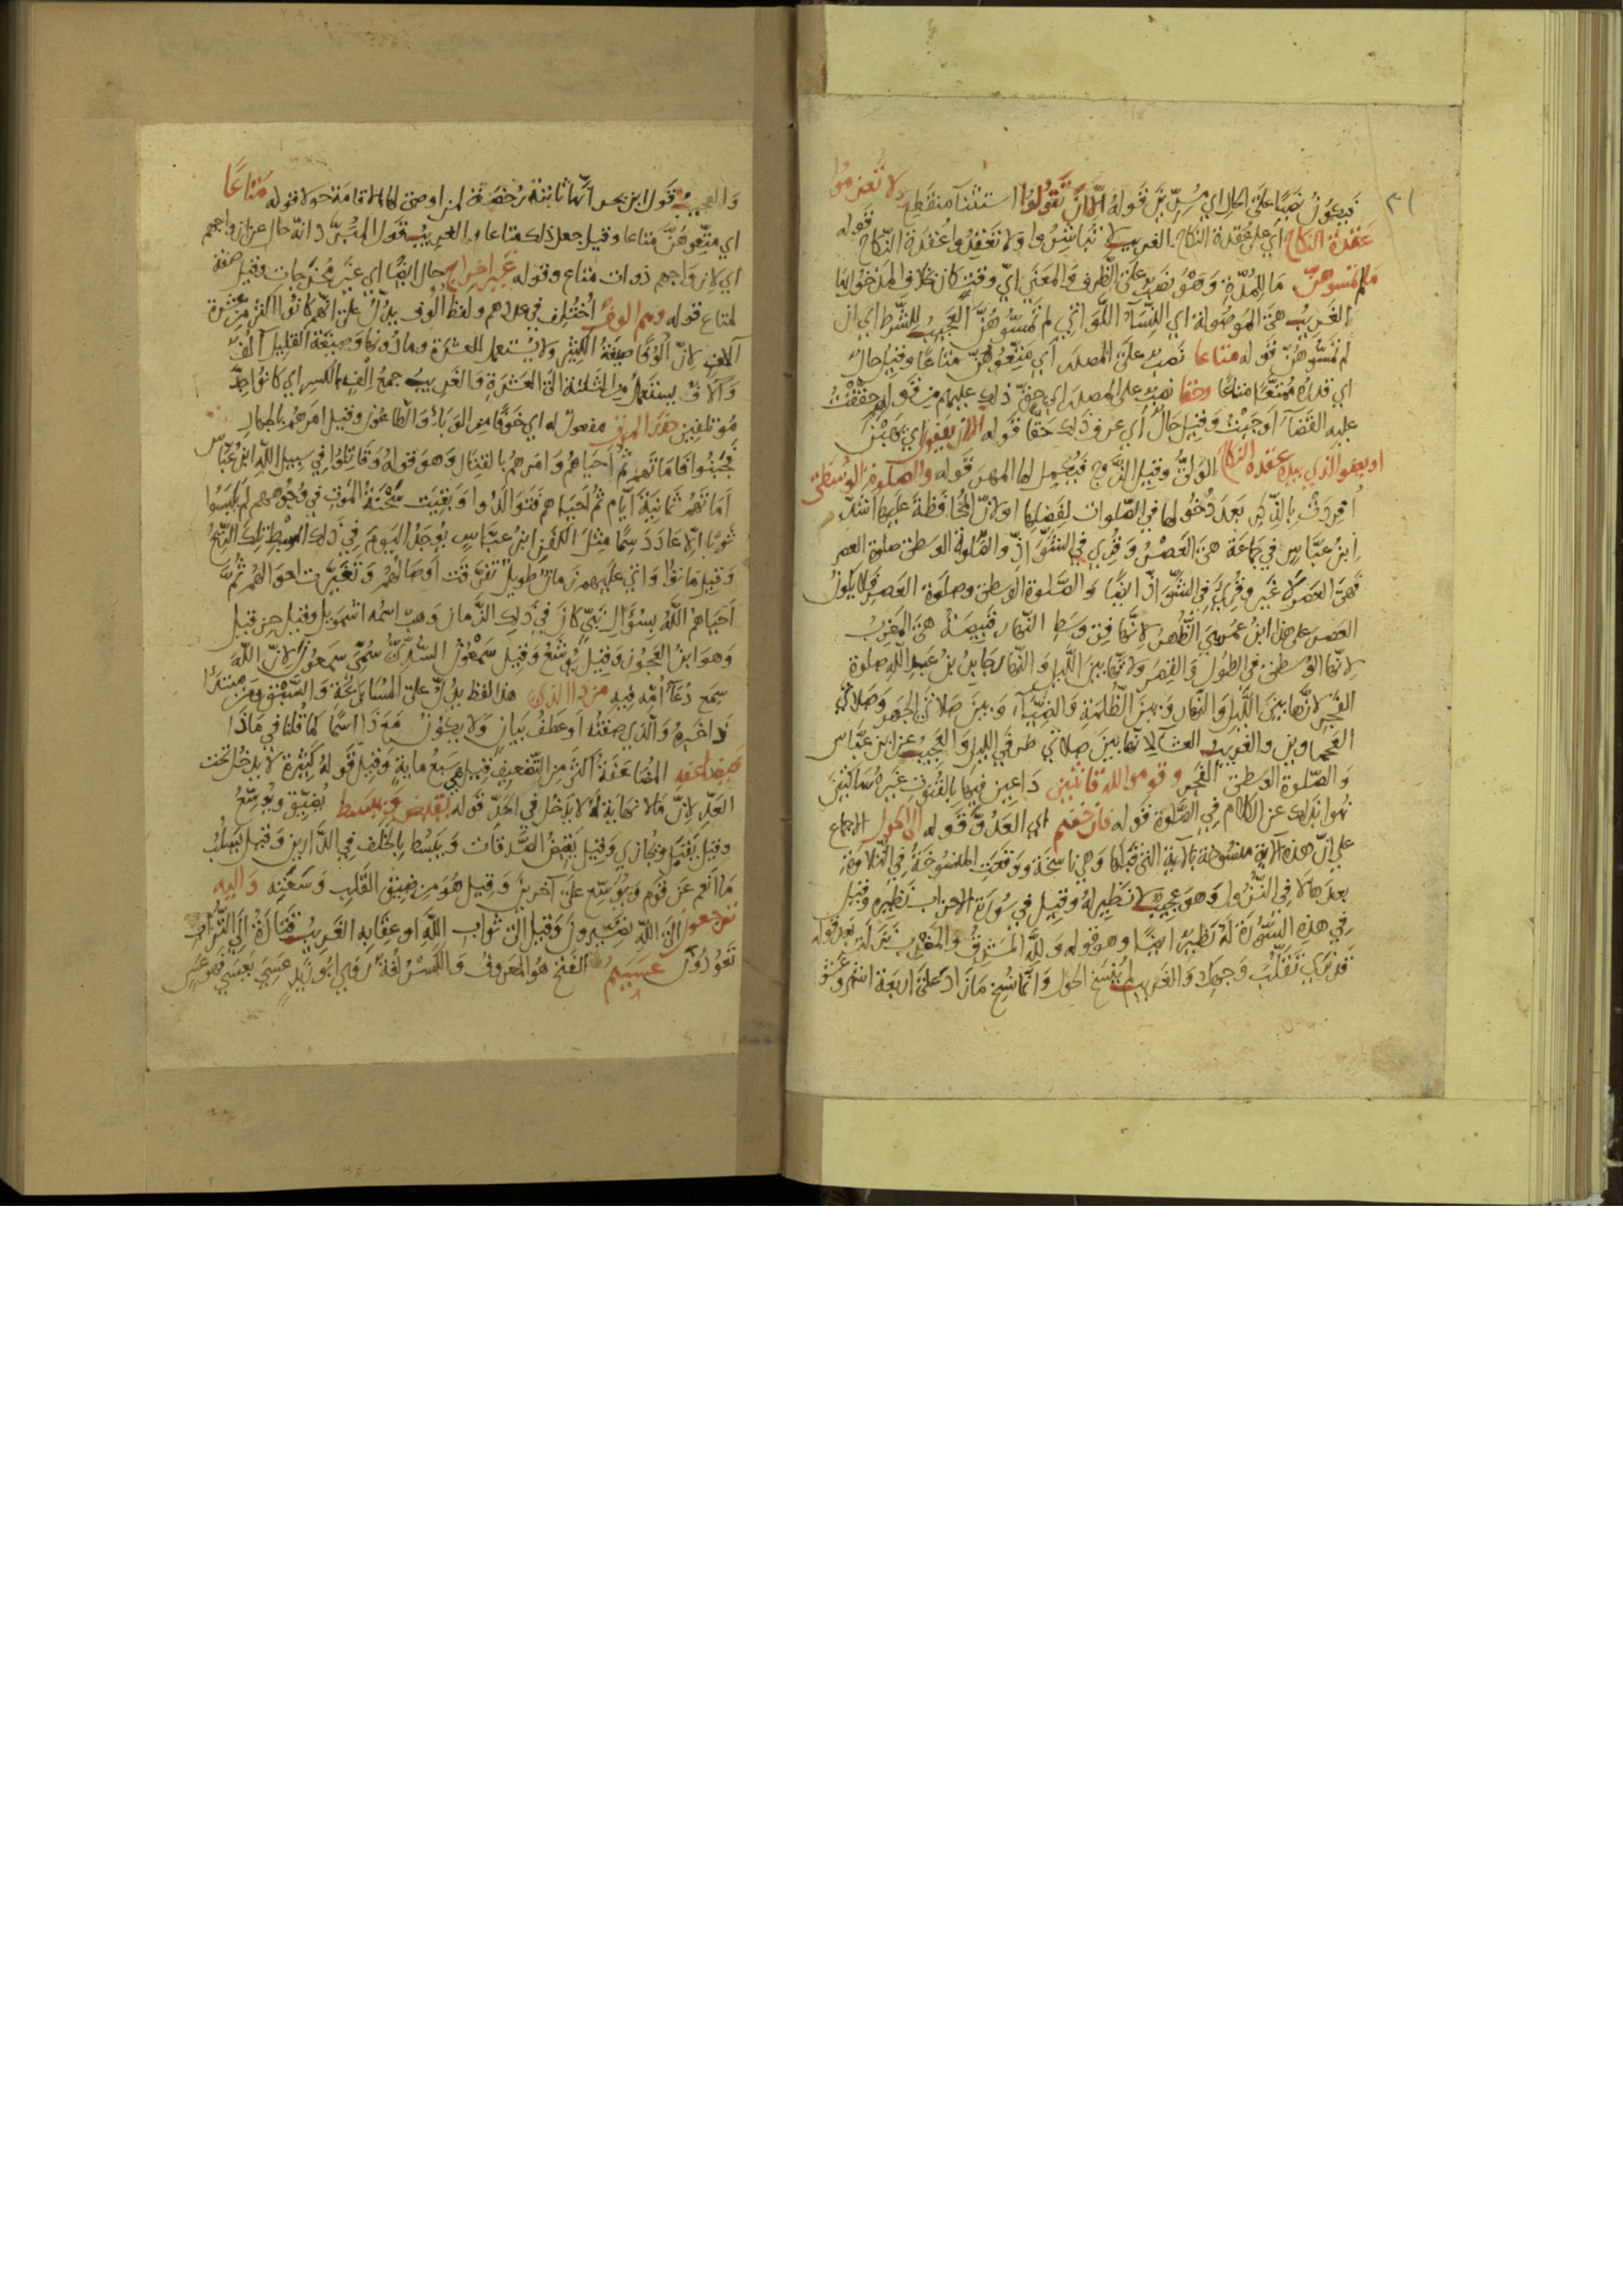 ٣١
فيكون نصبا على الحال اي مسرين قوله الا ان تقولوا استثنا منقطع ولا تعزموا
عقدة النكاح اي على عقدة النكاح الغريب لا تباشروا ولا تعقدوا عقدة النكاح قوله
ما لم تمسوهن ما للمدة وهو نصب على الظرف والمعنى اي وقت كان خلاف المدخول بها
الغريب هي الموصولة اي النساء اللواتي لم تمسوهن العجيب للشرط اي ان
لم تمسوهن قوله متاعا نصب على المصدر اي متعوهن متاعا وقيل حال
اي قدره ممتعا متاعا وحقا نصب على المصدر اي حق ذلك عليهم من قولهم حققت
عليه القضاء اوجبت وقيل حال اي عرف ذلك حقا قوله الا ان يعفون اي يهبن
او يعفو الذي بيده عقدة النكاح الولي وقيل الزوج فيكمل لها المهر قوله والصلوة الوسطى
افردت بالذكر بعد دخولها في الصلوات لفضلها او لان المحافظة عليها اشد
ابن عباس في جماعة هي العصر وقرئ في الشواذ والصلوة الوسطى صلوة العصر
فهي العصر لا غير وقرئ في الشواذ ايضا والصلوة الوسطى وصلوة العصر فلا يكون
العصر على هذا ابن عمر هي الظهر لانها في وسط النهار قبيصة هي المغرب
لانها الوسطى في الطول والقصر ولانها بين الليل والنهار جابر بن عبد الله صلوة
الفجر لانها بين الليل والنهار وبين الظلمة والضياء وبين صلاتي الجهر وصلاتي
العجماوين والغريب العشاء لانها بين صلاتي طرفي الليل والعجيب عن ابن عباس
والصلوة الوسطى الفجر وقوموا لله قانتين داعين فيها بالقنوت غيره ساكتين
نهوا بذلك عن الكلام في الصلوة قوله فان خفتم اي العدو قوله الى الحول الاجماع
على ان هذه الاية منسوخة بالاية التي قبلها وهي ناسخة ووقعت المنسوخة في التلاوة
بعدها لا في النزول وهو عجيب لا نظير له وقيل في سورة الاحزاب نظيره وقيل
في هذه السورة له نظير ايضا وهو قوله ولله المشرق والمغرب نزلت بعد قوله
قد نرى تقلب وجهك والغريب لم ينسخ الحول وانما نسخ ما زاد على اربعة اشهر وعشر
والعجيب قول ابن بحر انها ثابتة رخصة لمن اوصى لها بالاقامة حولا قوله متاعا
اي متعوهن متاعا وقيل جعل ذلك متاعا والغريب قول المبرد انه حال عن ازواجهم
اي لازواجهم ذوات متاع وقوله غير اخراج حال ايضا اي غير مخرجات وقيل صفة
لمتاع قوله وهم الوف اختلف في عددهم ولفظ الوف يدل على انهم كانوا اكثر من عشرة
آلاف لان الوفا صيغة الكثير ولا يستعمل للعشرة وما دونها وصيغة القليل آلف
وآلاف يستعمل من الثلثة الى العشرة والغريب جمع الف بالكسر اي كانوا جد
مؤتلفين حذر الموت مفعول له اي خوفا من الوباء والطاعون وقيل امرهم بالجهاد
فجبنوا فاماتهم ثم احياهم وامرهم بالقتال وهو قوله وقاتلوا في سبيل الله ابن عباس
اماتهم ثمانية ايام ثم احياهم فتوالدوا وبقيت سحنة الموت في وجوههم لم يلبسوا
ثوبا الا عاد دسما مثل الكفن ابن عباس يوجد اليوم في ذلك السبط تلك الريح
وقيل ماتوا واتى عليهم زمان طويل تفرقت اوصالهم وتغيرت احوالهم ثم
احياهم الله بسؤال نبي كان في ذلك الزمان وهب اسمه اشمويل وقيل حزقيل
وهو ابن العجوز وقيل يوشع وقيل سمعون السدي سمي سمعون لان الله
سمع دعاء امه فيه من ذا الذي هذا لفظ يدل على المسارعة والسبق ومن مبتدا
ذا خبره والذي صفته او عطف بيان ولا يكون من وذا اسما كما قلنا في ماذا
فيضاعفه المضاعفة اكثر من التضعيف قيل هي سبع ماية وقيل قوله كثيرة لا يدخل تحت
العد لان ما لا نهاية له لا يدخل في الحد قوله يقبض ويبسط يضيق ويوسع
وقيل يقبل ويجازي وقيل يقبض الصدقات ويبسط بالخلف في الدارين وقيل يسلب
ما انعم عن قوم ويوسع على آخرين وقيل هو من ضيق القلب وسعته واليه
ترجعون الى الله تصيرون وقيل الى ثواب الله او عقابه الغريب قتادة الى التراب
تعودون عسيتم الفتح هو المعروف والكسر لغة روى ابو زيد عسي يعسى فهو عس